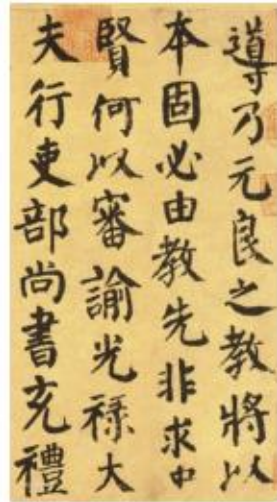 導乃元良之教將以
本固必由教先非求中
賢何以審諭光祿大
夫行吏部尚書充禮